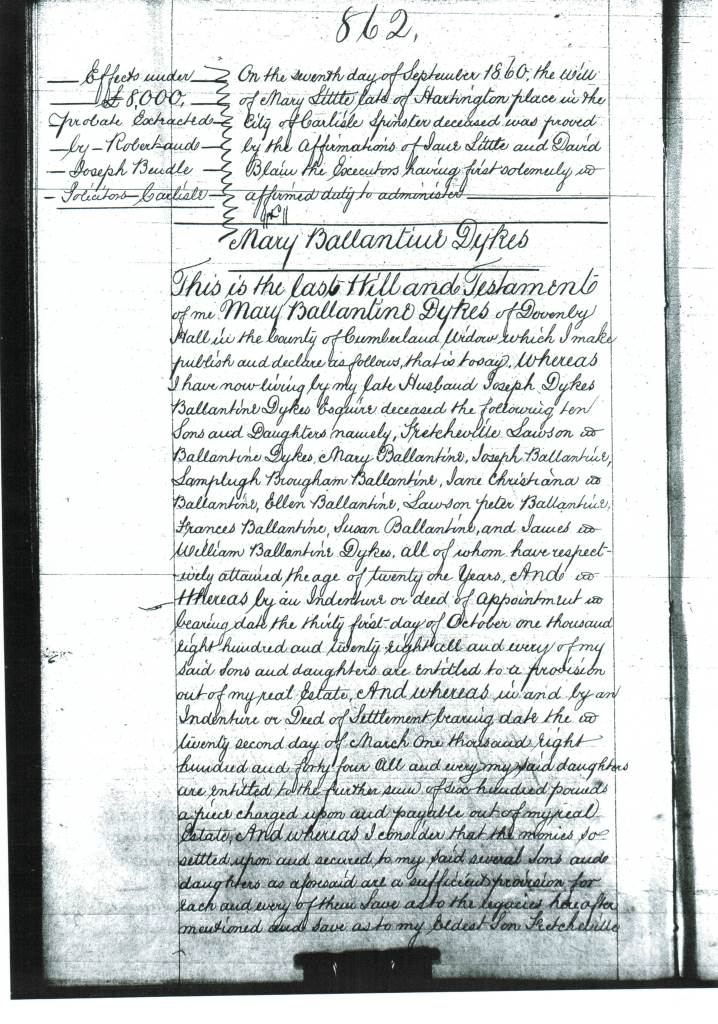 862.
Effects under
£8,000.
probate Extracted
by Robert and
Joseph Bendle
Solicitors Carlisle
On the seventh day of September 1860, the Will
of Mary Little late of Hartington place in the
City of Carlisle Spinster deceased was proved
by the Affirmations of Jane Little and David
Blain the Executors having first solemnly
affirmed duly to administer
Mary Ballantine Dykes
This is the last Will and Testament
of me Mary Ballantine Dykes of Dovenby
Hall in the County of Cumberland Widow which I make
publish and declare as follows, that is to say, Whereas
I have now living by my late Husband Joseph Dykes
Ballantine Dykes Esquire deceased the following ten
Sons and Daughters namely, Fretcheville Lawson
Ballantine Dykes, Mary Ballantine, Joseph Ballantine,
Lamplugh Brougham Ballantine, Jane Christiana
Ballantine, Ellen Ballantine, Lawson peter Ballantine,
Frances Ballantine, Susan Ballantine, and James
William Ballantine Dykes, all of whom have respect-
-ively attained the age of twenty one Years, And
Whereas by an Indenture or deed of appointment
bearing date the thirty first day of October one thousand
eight hundred and twenty eight all and every of my
said Sons and daughters are entitled to a provision
out of my real Estate, And whereas in and by an
Indenture or Deed of Settlement bearing date the
twenty second day of March One thousand eight
hundred and forty four all and every my said daughters
are entitled to the further sum of six hundred pounds
a piece charged upon and payable out of my real
Estate, And whereas I consider that the monies so
settled upon and secured to my said several Sons and
daughters as aforesaid are a sufficient provision for
each and every of them Save as to the legacies hereafter
mentioned and save as to my Eldest Son Fretcheville